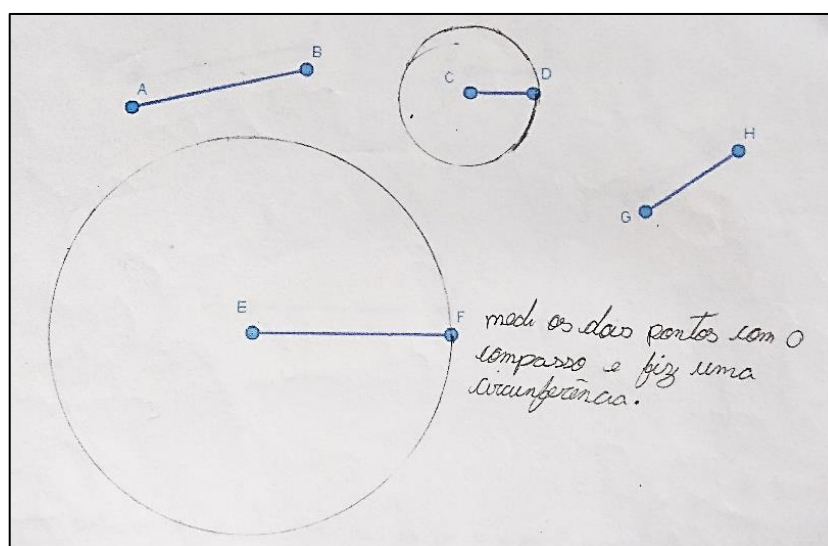 A
B
C
D
H
G
E
F
medi os dois pontos com o
compasso e fiz uma
circunferência.